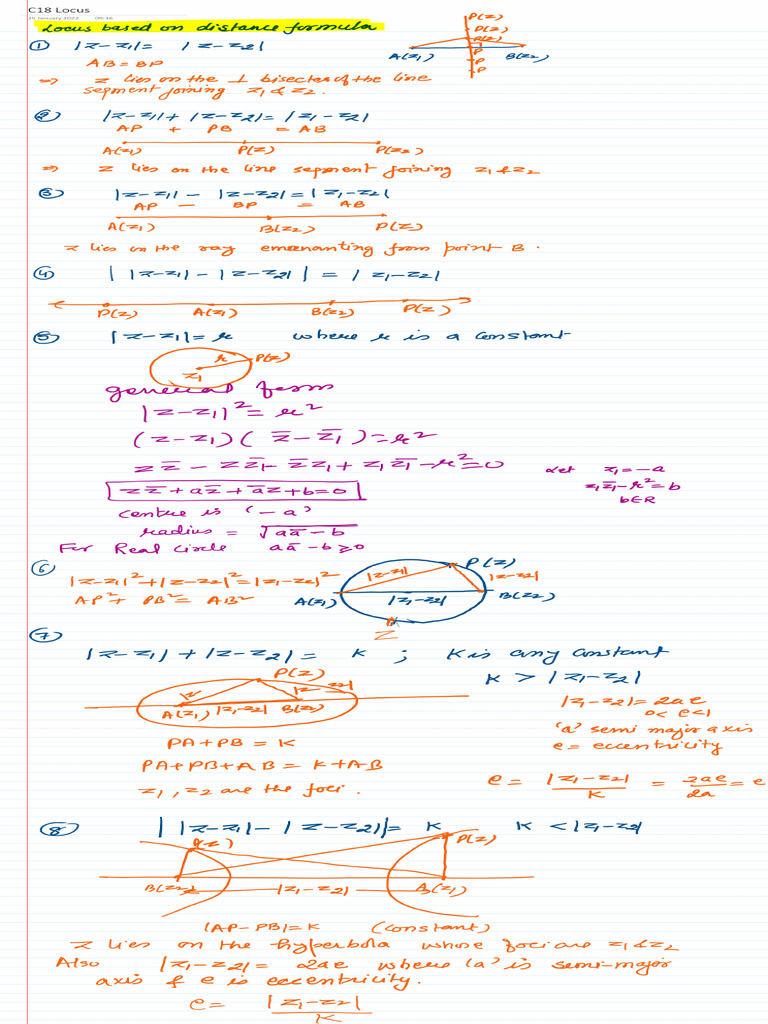 C18 Locus
25 January 2022 09:16
Locus based on distance formula
① |z-z₁| = |z-z₂|
P(z)
P(z)
P(z)
P
P
P
A(z₁) B(z₂)
AB = BP
⇒ z lies on the ⊥ bisector of the line
segment joining z₁ & z₂.
② |z-z₁| + |z-z₂| = |z₁-z₂|
AP + PB = AB
A(z₁) P(z) P(z₂)
⇒ z lies on the line segment joining z₁ & z₂
③ |z-z₁| - |z-z₂| = |z₁-z₂|
AP - BP = AB
A(z₁) B(z₂) P(z)
z lies in the ray emenanting from point B.
④ | |z-z₁| - |z-z₂| | = |z₁-z₂|
P(z) A(z₁) B(z₂) P(z)
⑤ |z-z₁| = r where r is a constant
r P(z)
z₁
general form
|z-z₁|² = r²
(z-z₁)(z̄-z̄₁) = r²
zz̄ - zz̄₁ - z̄z₁ + z₁z̄₁ - r² = 0
Let z₁ = -a
z₁z̄₁ - r² = b
b∈R
zz̄ + az̄ + āz + b = 0
Centre is '-a'
radius = √aā-b
For Real circle aā-b ≥ 0
⑥ |z-z₁|² + |z-z₂|² = |z₁-z₂|²
AP² + PB² = AB²
P(z)
|z-z₁| |z-z₂|
A(z₁) |z₁-z₂| B(z₂)
Z
⑦ |z-z₁| + |z-z₂| = K ; K is any constant
K > |z₁-z₂|
P(z)
A(z₁) |z₁-z₂| B(z₂)
|z₁-z₂| = 2ae
0<e<1
'a' semi major axis
e = eccentricity
PA + PB = K
PA + PB + AB = K + AB
z₁, z₂ are the foci.
e = |z₁-z₂|/K = 2ae/2a = e
⑧ | |z-z₁| - |z-z₂| | = K K < |z₁-z₂|
P(z) P(z)
B(z₂) |z₁-z₂| A(z₁)
|AP-PB| = K (constant)
z lies on the hyperbola whose foci are z₁ & z₂
Also |z₁-z₂| = 2ae where 'a' is semi-major
axis & e is eccentricity.
e = |z₁-z₂|/K